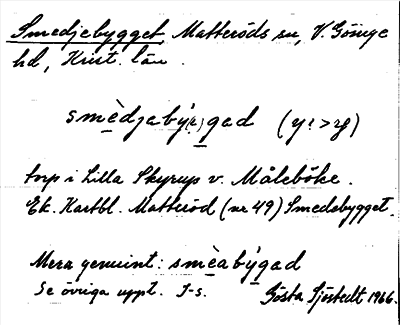 Smedjebygget, Matteröds sn, V. Göinge
hd, Krist. län.
smèdjabý(:)gad (y: > y)
torp i Lilla Skyrup v. Måleböke.
Ek. Kartbl. Matteröd (nr 49) Smedsbygget.
Mera genuint: smèabýgad
Se övriga uppt. I-s. Gösta Sjöstedt 1966.